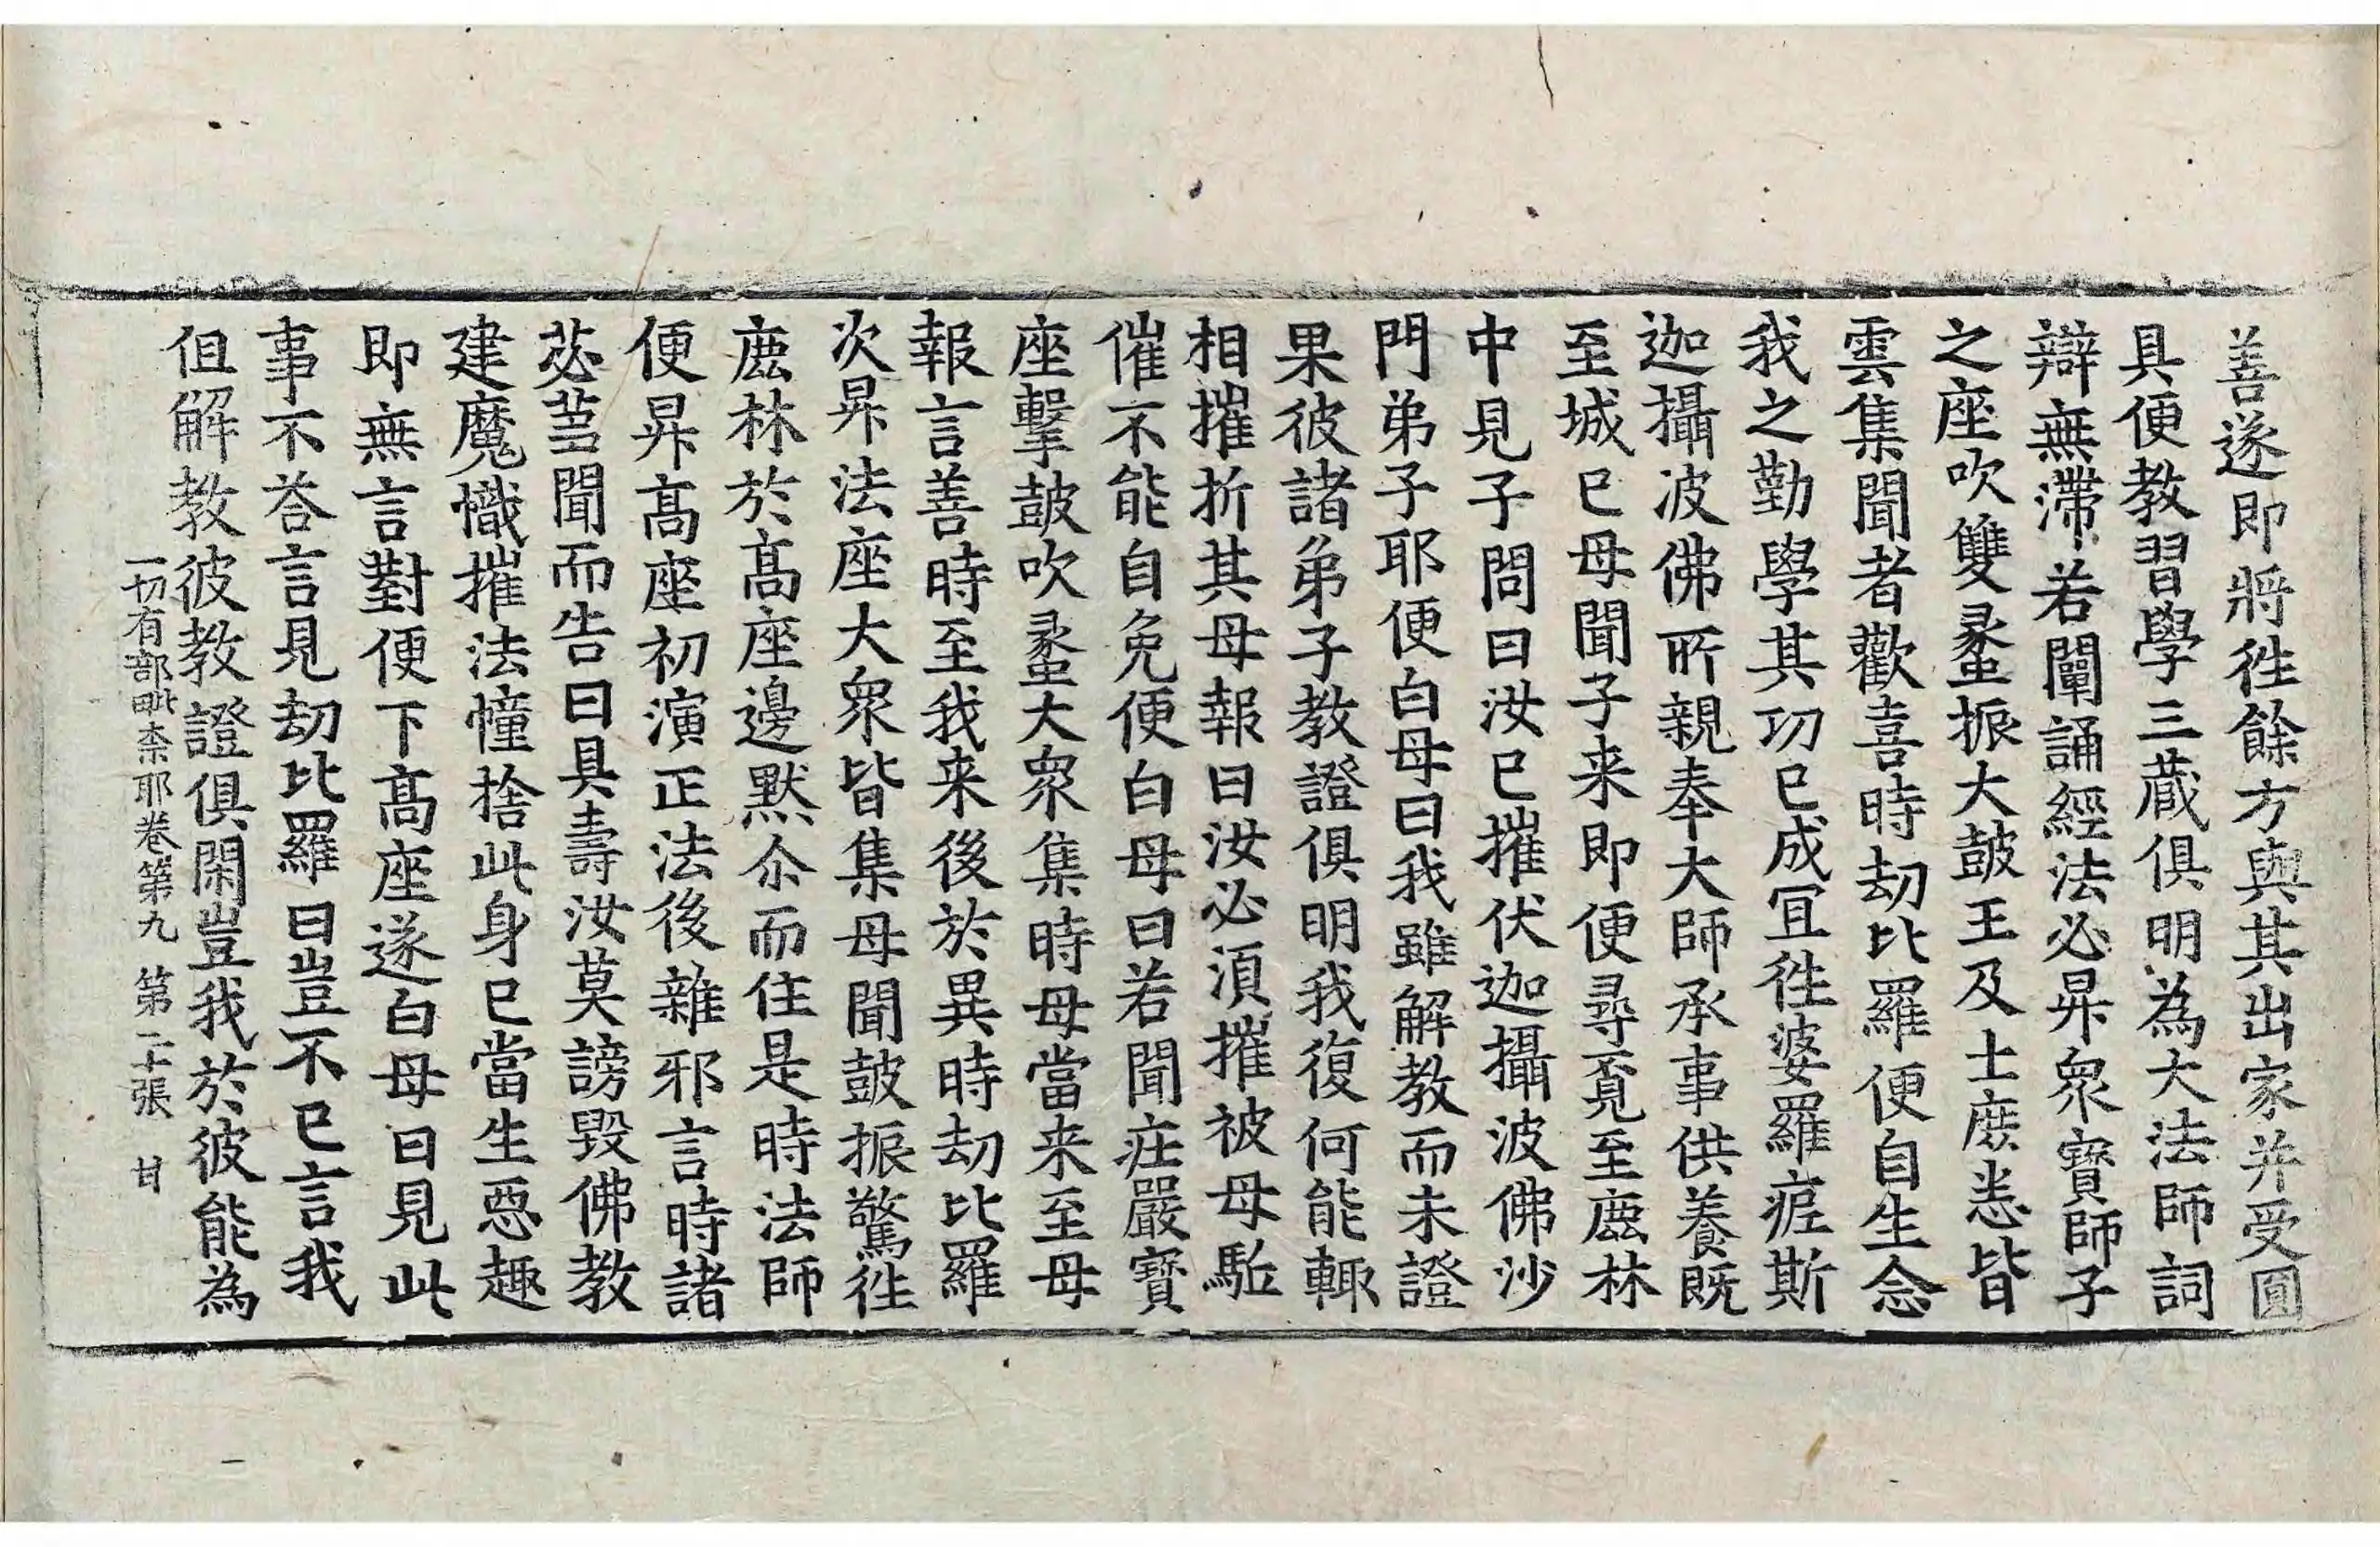 善遂即將徃餘方與其出家并受圓
具便教習學三藏俱明為大法師詞
辯無滯若闡誦經法必昇衆寶師子
之座吹雙蠡振大鼓王及士庶悉皆
雲集聞者歡喜時劫比羅便自生念
我之勤學其功已成冝徃婆羅痆斯
迦攝波佛所親奉大師承事供養既
至城已母聞子来即便尋覔至鹿林
中見子問曰汝已摧伏迦攝波佛沙
門弟子耶便白母曰我雖解教而未證
果彼諸弟子教證俱明我復何能輙
相摧折其母報曰汝必湏摧被母駈
催不能自免便白母曰若聞莊嚴寶
座擊鼓吹蠡大衆集時母當来至母
報言善時至我来後於異時劫比羅
次昇法座大衆皆集母聞鼓振驚徃
鹿林於髙座邊默尒而住是時法師
便昇髙座初演正法後雜邪言時諸
苾蒭聞而告曰具壽汝莫謗毀佛教
建魔幟摧法幢捨此身已當生惡趣
即無言對便下髙座遂白母曰見此
事不荅言見劫比羅曰豈不已言我
伹解教彼教證俱閑豈我於彼能為
一切有部毗柰耶卷第九 第二十張 甘